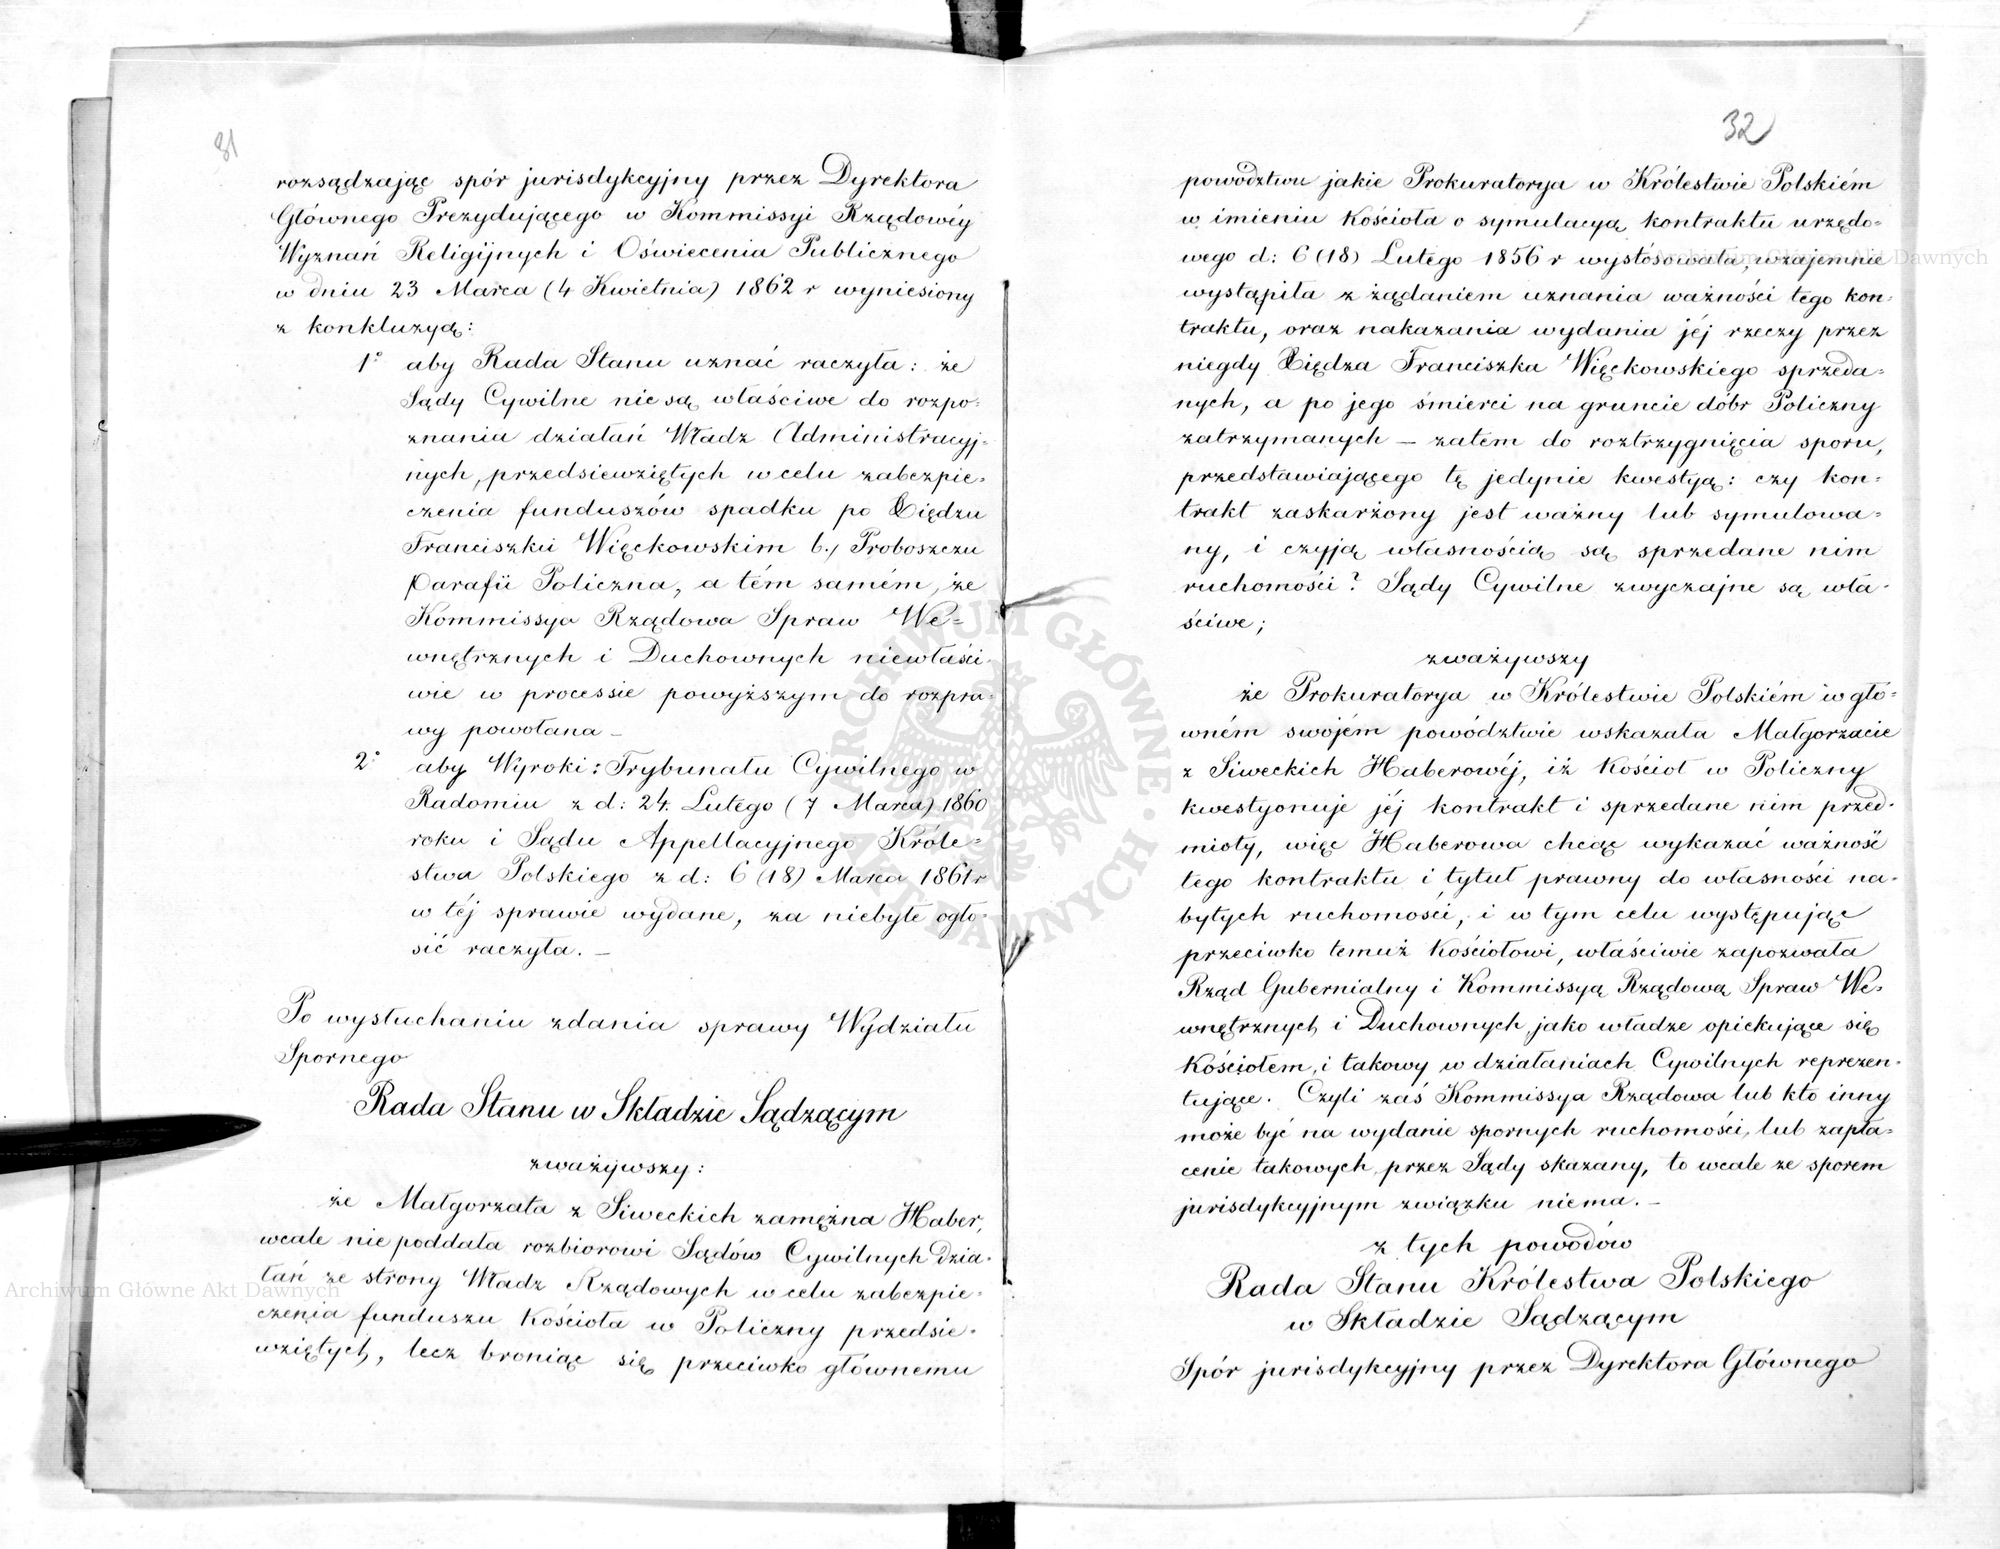 31
rozsądzając spór jurisdykcyjny przez Dyrektora
Głównego Prezydującego w Kommissyi Rządowéy
Wyznań Religijnych i Oświecenia Publicznego
w dniu 23 Marca (4 Kwietnia) 1862 r wyniesiony
z konkluzyą:
1° aby Rada Stanu uznać raczyła: że
Sądy Cywilne nie są właściwe do rozpo-
znania działań Władz Administracyj-
nych, przedsiewziętych w celu zabezpie-
czenia funduszów spadku po Xiędzu
Franciszku Więckowskim b. Proboszczu
Parafii Policzna, a tém samém, że
Kommissya Rządowa Spraw We=
wnętrznych i Duchownych niewłaści-
wie w processie powyższym do rozpra-
wy powołana –
2° aby Wyroki: Trybunału Cywilnego w
Radomiu z d: 24. Lutego (7 Marca) 1860
roku i Sądu Appellacyjnego Króle=
stwa Polskiego z d: 6 (18) Marca 1861 r
w téj sprawie wydane, za niebyłe ogło-
sić raczyła. –
Po wysłuchaniu zdania sprawy Wydziału
Spornego
Rada Stanu w Składzie Sądzącym
zważywszy:
że Małgorzata z Siweckich zamężna Haber,
wcale nie poddała rozbiorowi Sądów Cywilnych dzia-
łań ze strony Władz Rządowych w celu zabezpie-
czenia funduszu Kościoła w Policzny przedsie-
wziętych, lecz broniąc się przeciwko głównemu
32
powództwu jakie Prokuratorya w Królestwie Polskiém
w imieniu Kościoła o symulacyą kontraktu urzędo-
wego d: 6 (18) Lutego 1856 r wystósowała, wzajemnie
wystąpiła z żądaniem uznania ważności tego kon-
traktu, oraz nakazania wydania jéj rzeczy przez
niegdy Xiędza Franciszka Więckowskiego sprzeda-
nych, a po jego śmierci na gruncie dóbr Policzny
zatrzymanych – zatem do roztrzygnięcia sporu,
przedstawiającego tę jedynie kwestyą: czy kon-
trakt zaskarżony jest ważny lub symulowa-
ny, i czyją własnością są sprzedane nim
ruchomości? Sądy Cywilne zwyczajne są wła-
ściwe;
zważywszy
że Prokuratorya w Królestwie Polskiém w głó-
wném swojém powództwie wskazała Małgorzacie
z Siweckich Haberowéj, iż Kościoł w Policzny
kwestyonuje jéj kontrakt i sprzedane nim przed-
mioty, więc Haberowa chcąc wykazać ważność
tego kontraktu i tytuł prawny do własności na-
bytych ruchomości, i w tym celu występując
przeciwko temuż Kościołowi, właściwie zapozwała
Rząd Gubernialny i Kommissyą Rządową Spraw We-
wnętrznych i Duchownych, jako władze opiekujące się
Kościołem, i takowy w działaniach Cywilnych reprezen-
tujące. Czyli zaś Kommissya Rządowa lub kto inny
może być na wydanie spornych ruchomości, lub zapła-
cenie takowych przez Sądy skazany, to wcale ze sporem
jurisdykcyjnym związku niema. –
z tych powodów
Rada Stanu Królestwa Polskiego
w Składzie Sądzącym
Spór jurisdykcyjny przez Dyrektora Głównego
Archiwum Główne Akt Dawnych
Archiwum Główne Akt Dawnych
ARCHIWUM GŁÓWNE AKT DAWNYCH